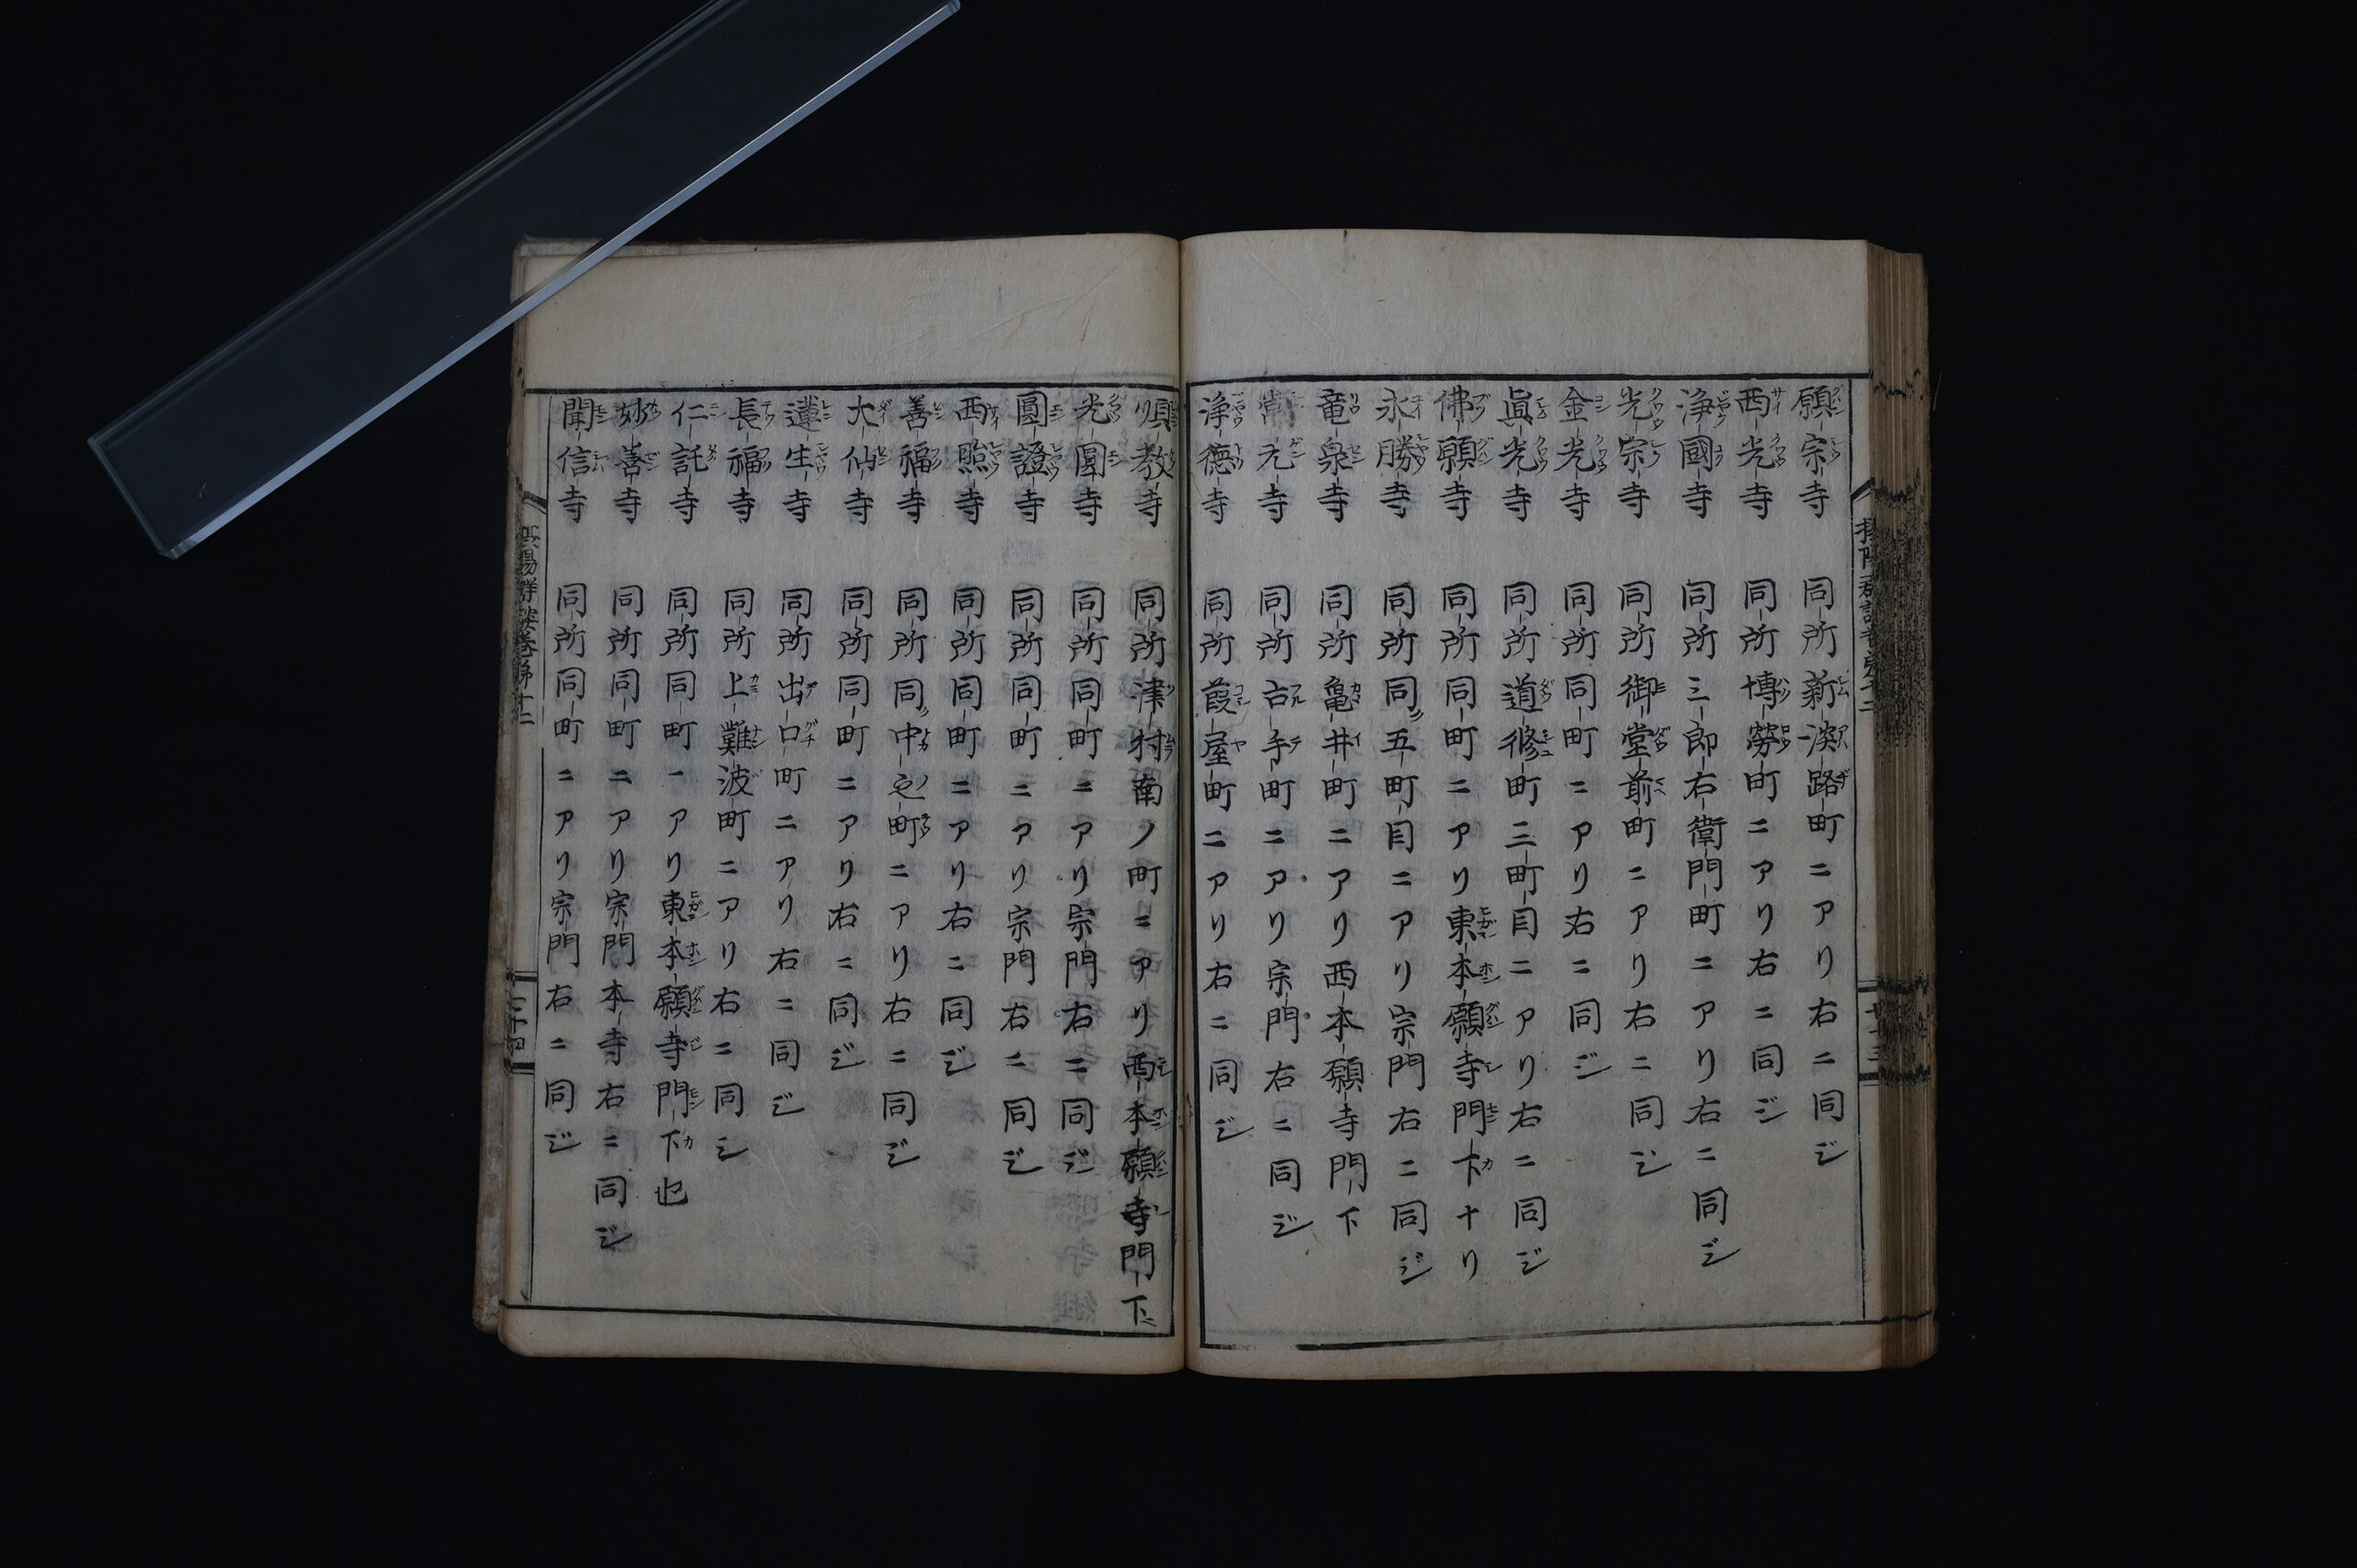 願宗寺 同所新淡路町ニアリ右ニ同ジ
西光寺 同所博勞町ニアリ右ニ同ジ
浄國寺 同所三郎右衛門町ニアリ右ニ同ジ
光宗寺 同所御堂前町ニアリ右ニ同ジ
金光寺 同所同町ニアリ右ニ同ジ
眞光寺 同所道修町三町目ニアリ右ニ同ジ
佛願寺 同所同町ニアリ東本願寺門下ナリ
永勝寺 同所同五町目ニアリ宗門右ニ同ジ
竜泉寺 同所亀井町ニアリ西本願寺門下
常元寺 同所古手町ニアリ宗門右ニ同ジ
浄徳寺 同所葭屋町ニアリ右ニ同ジ
順教寺 同所津村南ノ町ニアリ西本願寺門下ニ
光圓寺 同所同町ニアリ宗門右ニ同ジ
圓證寺 同所同町ニアリ宗門右ニ同ジ
西照寺 同所同町ニアリ右ニ同ジ
善福寺 同所同中之町ニアリ右ニ同ジ
大仙寺 同所同町ニアリ右ニ同ジ
蓮生寺 同所出口町ニアリ右ニ同ジ
長福寺 同所上難波町ニアリ右ニ同シ
仁託寺 同所同町ニアリ東本願寺門下也
妙善寺 同所同町ニアリ宗門本寺右ニ同ジ
聞信寺 同所同町ニアリ宗門右ニ同ジ
陽群談巻第十二